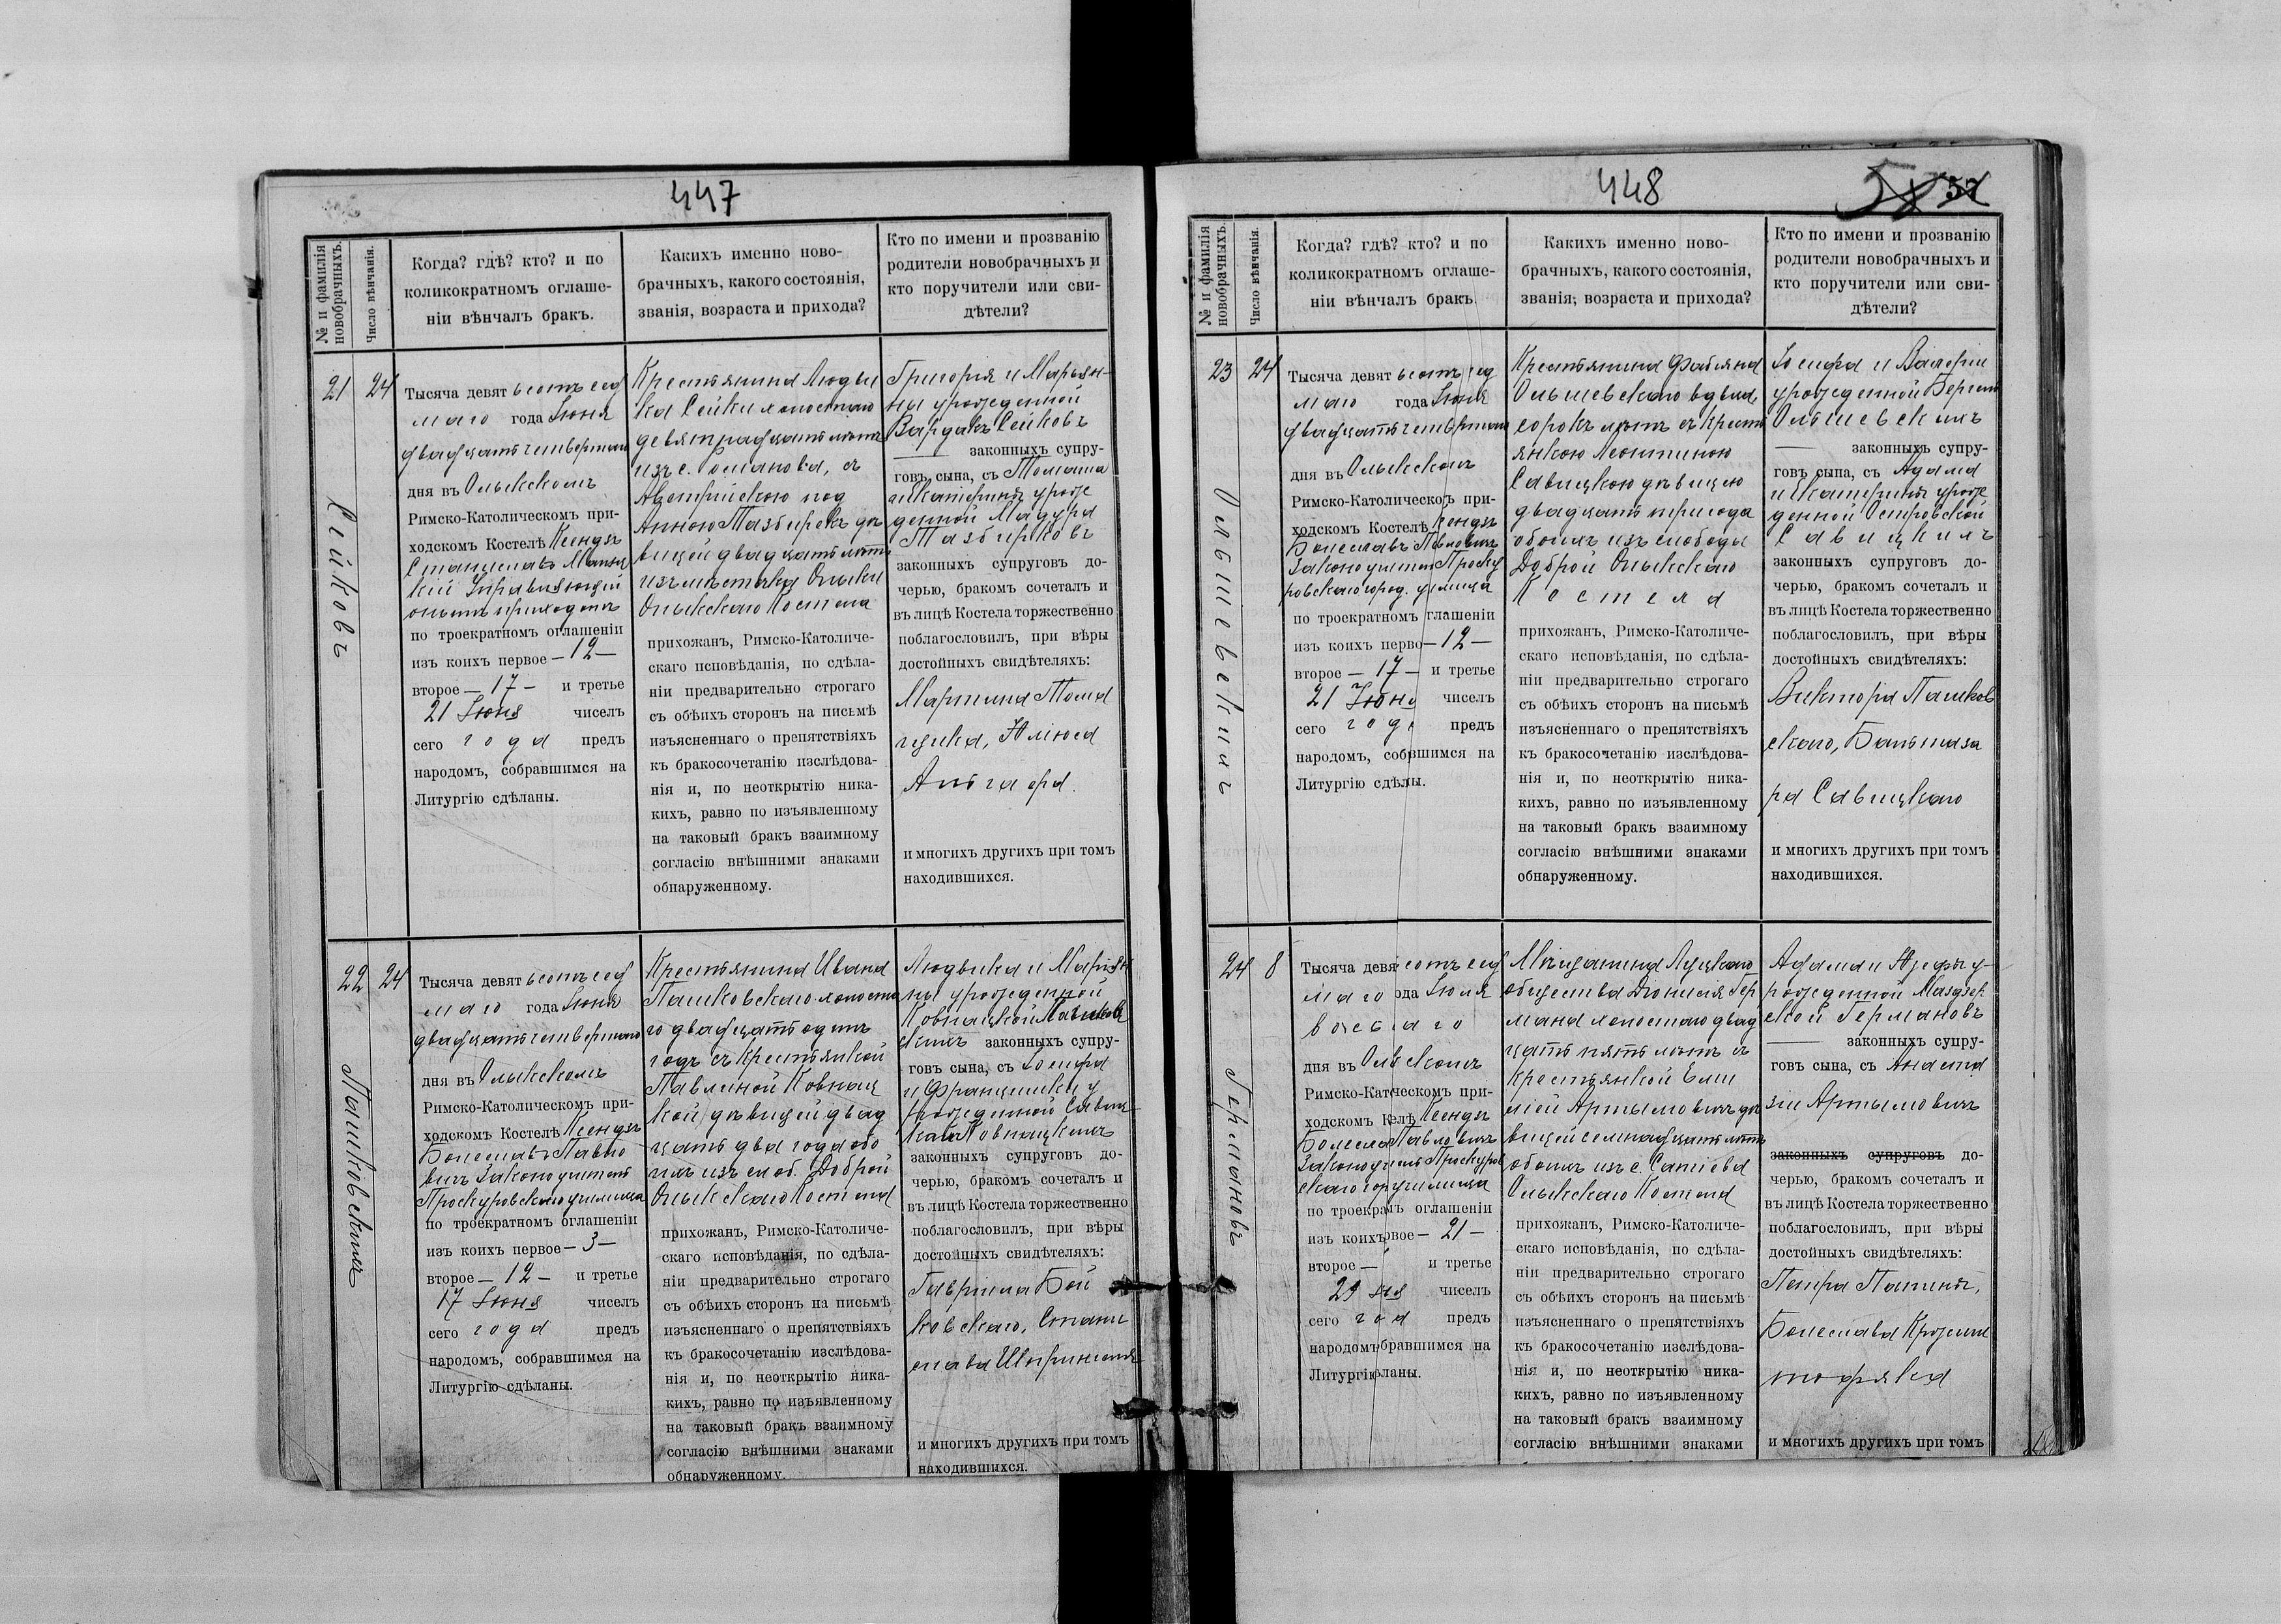 447
№ и фамилія новобрачныхъ.
Число вѣнчанія.
Когда? гдѣ? кто? и по
коликократномъ оглаше-
ніи вѣнчалъ бракъ.
Какихъ именно ново-
брачныхъ, какого состоянія,
званія, возраста и прихода?
Кто по имени и прозванію
родители новобрачныхъ и
кто поручители или сви-
дѣтели?
21
24
Сейковъ
Тысяча девятьсотъ сед
маго года Іюня
двадцать четвертаго
дня въ Олыкскомъ
Римско-Католическомъ при-
ходскомъ Костелѣ Ксендзъ
Станиславъ
кій Управляющій
онымъ приходомъ
по троекратномъ оглашеніи
изъ коихъ первое — 12 —
второе — 17 — и третье
21 Іюня чиселъ
сего года предъ
народомъ, собравшимся на
Литургію сдѣланы.
Крестьянина Людви
ка Сейки холостаго
девятнадцати лѣтъ
изъ с. Романова, съ
Австрійскою под
Анною Тазбирекъ дѣ
вицей двадцати лѣтъ
изъ мѣстечка Олыки
Олыкскаго Костела
прихожанъ, Римско-Католиче-
скаго исповѣданія, по сдѣла-
ніи предварительно строгаго
съ обѣихъ сторонъ на письмѣ
изъясненнаго о препятствіяхъ
къ бракосочетанію изслѣдова-
нія и, по неоткрытію ника-
кихъ, равно по изъявленному
на таковый бракъ взаимному
согласію внѣшними знаками
обнаруженному.
Григорія и Марьян-
ны урожденной
Вардакъ Сейковъ
— законныхъ супру-
говъ, сына, съ Томаша
и Катерины урож
денной Мадура
Тазбирковъ
законныхъ супруговъ до-
черью, бракомъ сочеталъ и
въ лицѣ Костела торжественно
поблагословилъ, при вѣры
достойныхъ свидѣтеляхъ:
Мартина Тома
щика, Юлюса
Альгаера.
и многихъ другихъ при томъ
находившихся.
22
24
Пашковскихъ
Тысяча девятьсотъ сед
маго года Іюня
двадцать четвертаго
дня въ Олыкскомъ
Римско-Католическомъ при-
ходскомъ Костелѣ Ксендзъ
Болеславъ Павло
вичъ Законоучитель
Проскуровскаго училища
по троекратномъ оглашеніи
изъ коихъ первое — 3 —
второе — 12 — и третье
17 Іюня чиселъ
сего года предъ
народомъ, собравшимся на
Литургію сдѣланы.
Крестьянина Ивана
Пашковскаго холоста
го двадцать одинъ
годъ съ Крестьянкой
Павлиной Ковнац
кой, дѣвицей двад
цать два года обо
ихъ изъ слоб. Доброй
Олыкскаго Костела
прихожанъ, Римско-Католиче-
скаго исповѣданія, по сдѣла-
ніи предварительно строгаго
съ обѣихъ сторонъ на письмѣ
изъясненнаго о препятствіяхъ
къ бракосочетанію изслѣдова-
нія и, по неоткрытію ника-
кихъ, равно по изъявленному
на таковый бракъ взаимному
согласію внѣшними знаками
обнаруженному.
Людвика и Маріян
ны урожденной
Ковнацкой Пашков
скихъ законныхъ супру-
говъ сына, съ Іосифа
и Францишки у
рожденной Савиц
кой Ковнацкихъ
законныхъ супруговъ до-
черью, бракомъ сочеталъ и
въ лицѣ Костела торжественно
поблагословилъ, при вѣры
достойныхъ свидѣтеляхъ:
Гавріила Бой
ковскаго, Стани
слава
и многихъ другихъ при томъ
находившихся.
448
58 57
№ и фамилія новобрачныхъ.
Число вѣнчанія.
Когда? гдѣ? кто? и по
коликократномъ оглаше-
ніи вѣнчалъ бракъ.
Какихъ именно ново-
брачныхъ, какого состоянія,
званія, возраста и прихода?
Кто по имени и прозванію
родители новобрачныхъ и
кто поручители или сви-
дѣтели?
23
24
Ольшевскихъ
Тысяча девятьсотъ сед
маго года Іюня
двадцать четвертаго
дня въ Олыкскомъ
Римско-Католическомъ при-
ходскомъ Костелѣ Ксендзъ
Болеславъ Павловичъ
Законоучитель Проску
ровскаго город. училища
по троекратном глашеніи
изъ коихъ перво — 12 —
второе — 17 — и третье
21 Іюня чиселъ
сего года предъ
народомъ, собравшимся на
Литургію сдѣлы.
Крестьянина Фабіяна
Ольшевскаго вдовца,
сорокъ лѣтъ съ Кресть
янкою Леонтиною
Савицкою дѣвицею
двадцать три года
обоихъ изъ слободы
Доброй Олыкскаго
Костела
прихожанъ, Римско-Католиче-
скаго исповѣданія, по сдѣла-
ніи предварительно строгаго
съ обѣихъ сторонъ на письмѣ
изъясненнаго о препятствіяхъ
къ бракосочетанію изслѣдова-
нія и, по неоткрытію ника-
кихъ, равно по изъявленному
на таковый бракъ взаимному
согласію внѣшними знаками
обнаруженному.
Іосифа и Валеріи
урожденной
Ольшевскихъ
— законныхъ супру-
говъ сына, съ Адама
и Катерины урож
денной Островской
Савицкихъ
законныхъ супруговъ до-
черью, бракомъ сочеталъ и
въ лицѣ Костела торжественно
поблагословилъ, при вѣры
достойныхъ свидѣтеляхъ:
Виктора Пашков
скаго, Бальтаза
ра Савицкаго
и многихъ другихъ при томъ
находившихся.
24
8
Германовъ
Тысяча девятьсотъ сед
маго ода Іюля
восьмаго
дня въ Олыкскомъ
Римско-Катческомъ при-
ходскомъ Келѣ Ксендзъ
Болесла Павловичъ
Законоучит Проскуров
скаго гор училища
по троекрамъ оглашеніи
изъ коихървое — 21 —
второе — и третье
29 чиселъ
сего года предъ
народомъбравшимся на
Литургіюланы.
Мѣщанина Луцкаго
общества Діонисія Гер
мана холостаго двад
цать пять лѣтъ съ
Крестьянкой Еми
ліей Артымовичъ дѣ
вицей семнадцати лѣтъ
обоихъ изъ с. Сатіева
Олыкскаго Костела
прихожанъ, Римско-Католиче-
скаго исповѣданія, по сдѣла-
ніи предварительно строгаго
съ обѣихъ сторонъ на письмѣ
изъясненнаго о препятствіяхъ
къ бракосочетанію изслѣдова-
нія и, по неоткрытію ника-
кихъ, равно по изъявленному
на таковый бракъ взаимному
согласію внѣшними знаками
Адама и Юзефы у-
рожденной Мазур
ской Германовъ
— законныхъ супру-
говъ сына, съ Анаста
зіи Артымовичъ
законныхъ супруговъ до-
черью, бракомъ сочеталъ и
въ лицѣ Костела торжественно
поблагословилъ, при вѣры
достойныхъ свидѣтеляхъ:
Петра
Болеслава Кржиш
тофяка
и многихъ другихъ при томъ